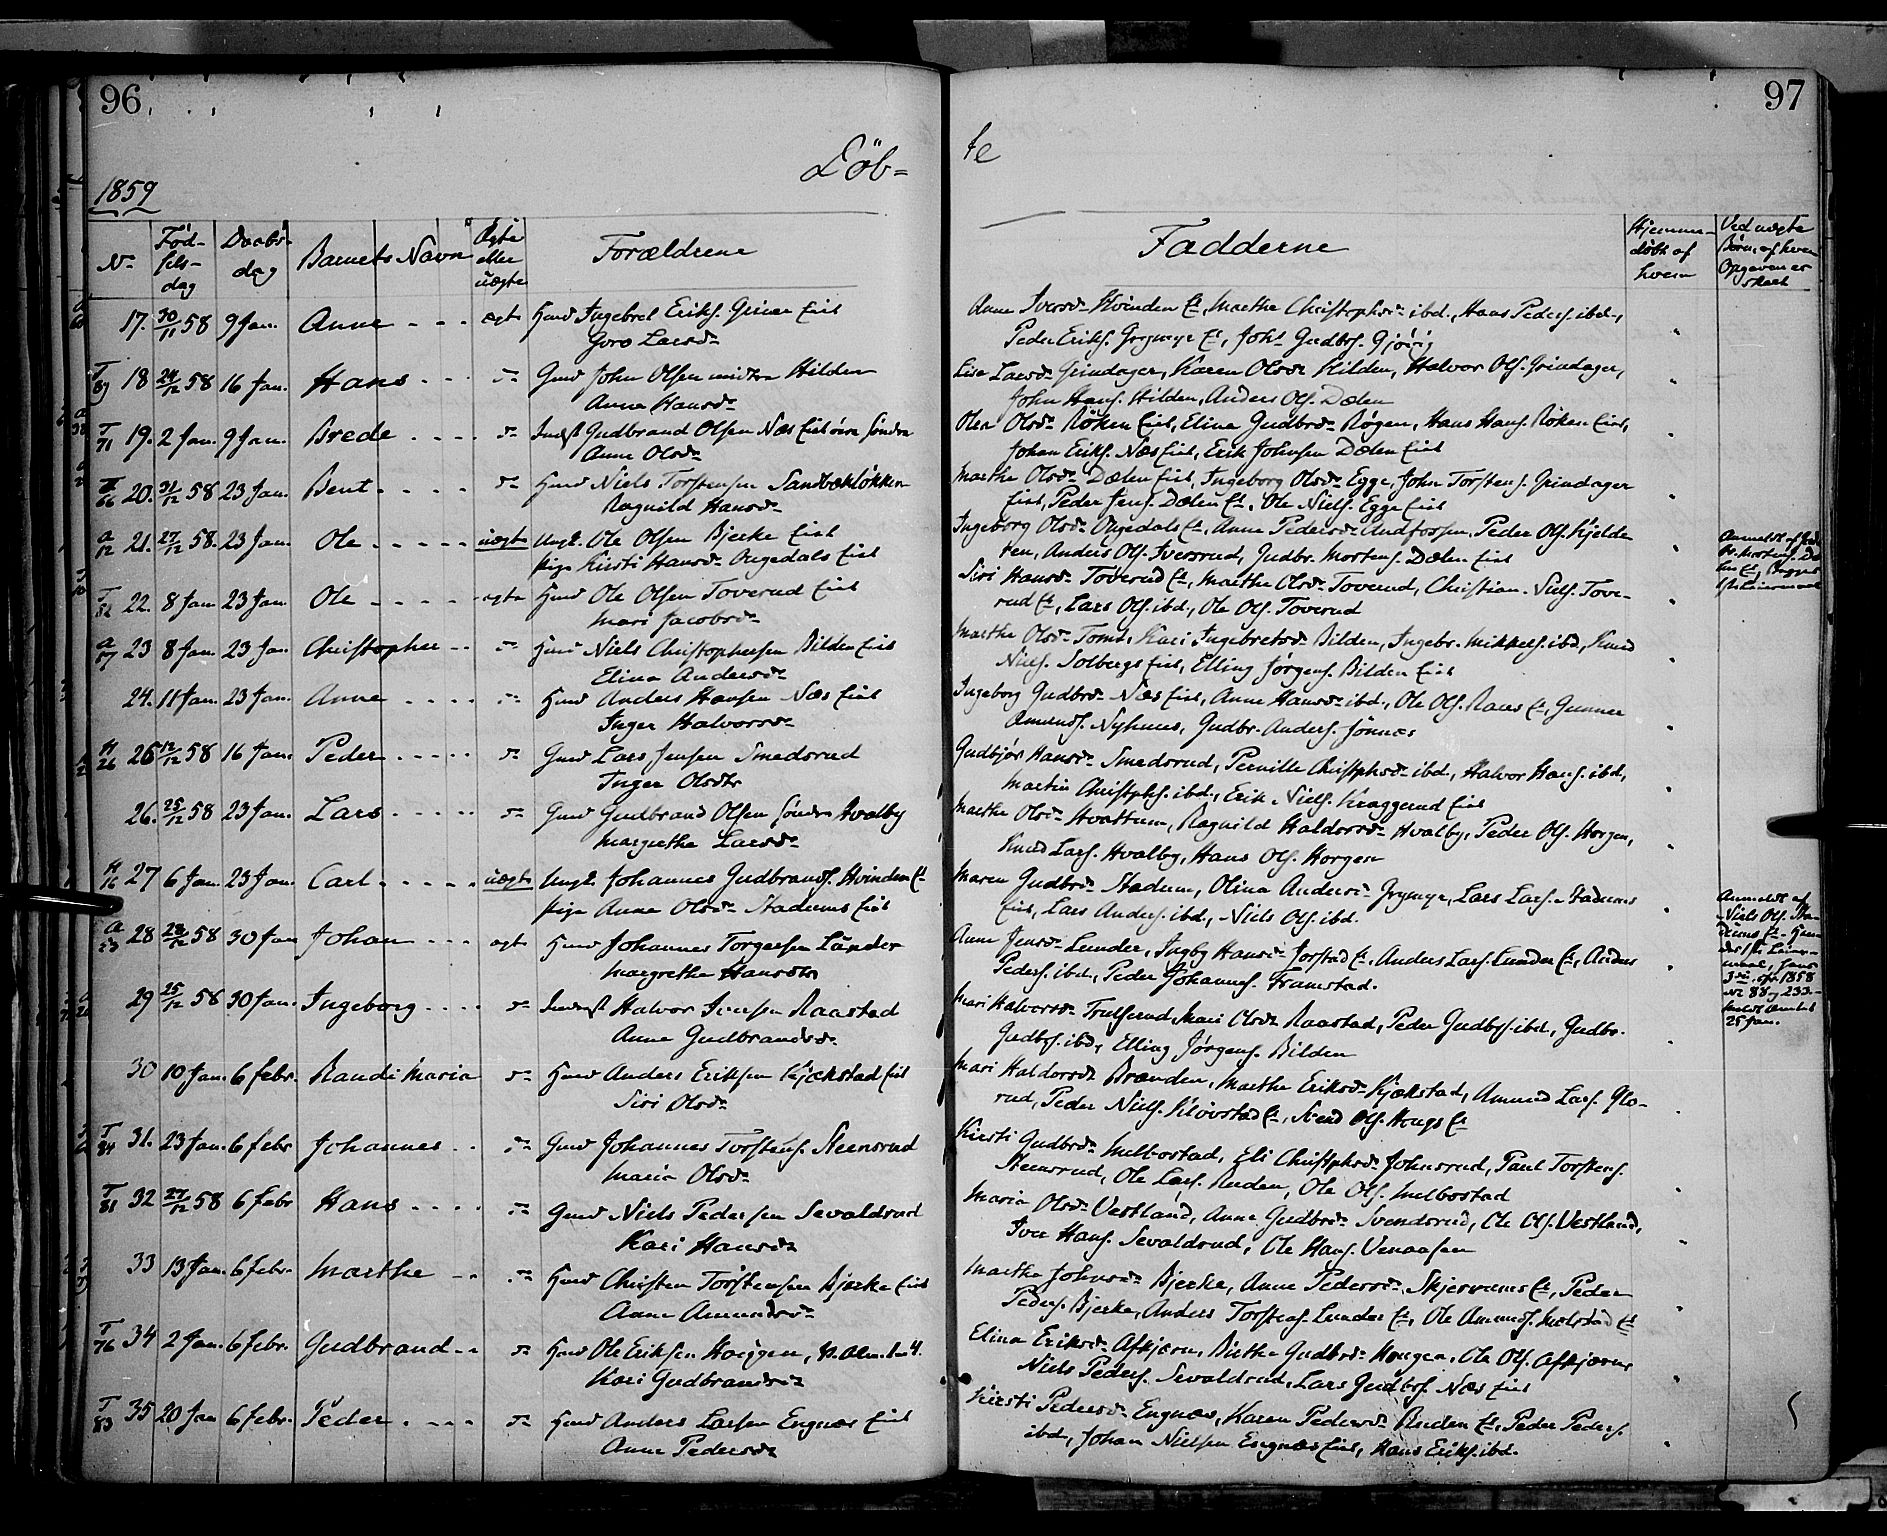 96
97
Döb=
te
1859
No
Fød-
sels-
dag
Daabs-
dag
Barnets Navn
Ægte
eller
uægte
Forældrene
Fadderne
Hjemme-
døbt af
hvem
Ved uægte
Børn, af hvem
Opgaven er
skeet
17. 30/11 58 9 Jan. Anne ægte Huusm Ingebret Eriks. Eiet
Goro Larsdr
Anne Iversdr Hvinden Et, Marthe Christophsdr ibd., Hans Peders. ibd.,
Peder Eriks. Grymyr Et, Johs Gudbrs. Gjøvig
18 24/12 58 16 Jan. Hans do Gmd John Olsen midtre Hilden
Anne Hansdr
Lise Larsdr Grindager, Karen Olsdr Hilden, Halvor Ols. Grindager,
John Hans. Hilden, Anders Ols. Dælen
19. 2 Jan. 9 Jan. Brede do Inderst Gudbrand Olsen Næs Eiet søndre
Anne Olsdr
Olea Olsdr Røken Eiet, Elina Gudbrdr Røgen, Hans Hans. Røken Eiet,
Johan Eriks. Næs Eiet, Erik Johnsen Dælen Eiet
20. 31/12 58 23 Jan. Bent do Huusm Niels Torstensen Sandbækløkken
Ragnild Hansdr
Marthe Olsdr Dælen Eiet, Ingeborg Olsdr Egge, John Torstens. Grindager
Eiet, Peder Jens. Dælen Et, Ole Niels. Egge Eiet
21. 27/12 58. 23 Jan. Ole uægte Ungk. Ole Olsen Bjerke Eiet
Pige Kirsti Hansdr Ongedals Eiet
Ingeborg Olsdr Ongedals Et, Anne Pedersdr Andfossen, Peder Ols. Kjelde
ren, Anders Ols. Iversrud, Gudbr. Mortens. Dælen Eiet
22. 8 Jan 23 Jan. Ole ægte Huusm Ole Olsen Toverud Eiet
Mari Jacobsdr
Siri Hansdr Toverud Et, Marthe Olsdr Toverud, Christian Niels. Tove-
rud Et, Lars Ols. ibd., Ole Ols. Toverud
23 8 Jan 23 Jan Christopher do Huusm Niels Christophersen Bilden Eiet
Elina Andersdr
Marthe Olsdr Toms, Kari Ingebretsdr Bilden, Ingebr. Mikkels. ibd., Knud
Niels. Solbergs Eiet, Elling Jørgens. Bilden Eiet
24. 11 Jan. 23 Jan. Anne do Huusm Anders Hansen Næs Eiet
Inger Halvorsdr
Ingeborg Gudbrdr Næs Eiet, Anne Hansdr ibd., Ole Ols. Raaes Et, Gunner
Amunds. Nyhuus, Gudbr. Anders. Jønnes
25 12/12 58 16 Jan. Peder do Gmd Lars Jensen Smedsrud
Inger Olsdtr
Gudbjør Hansdr Smedsrud, Pernille Christphsdr ibd., Halvor Hans. ibd.,
Martin Christphs. ibd., Erik Niels. Kraggerud Eiet
26. 25/12 58 23 Jan. Lars do Gmd Gudbrand Olsen søndre Hvalby
Margrethe Larsdr
Marthe Olsdr Hvattum, Ragnild Haldorsdr Hvalby, Peder Ols. Horgen,
Knud Lars. Hvalby, Hans Ols. Horgen
27 6 Jan. 23 Jan. Carl uægte Ungk. Johannes Gudbrands. Hvinden Et
Pige Anne Olsdr Stadums Eiet
Maren Gudbrdr Stadum, Olina Andersdr Grymyr, Lars Lars. Stadums
Eiet, Lars Anders. ibd., Niels Ols. ibd.
Anmeldt af
Niels Ols. Sta-
dums Et
1858
25 Jan.
28 28/12 58 30 Jan Johan ægte Huusm Johannes Torgersen Lunder
Margrethe Hansdtr
Anne Jensdr Lunder, Ingbg Hansdr Jorstad Et, Anders Lars. Lunder Et, Anders
Peders. ibd., Peder Johannes. Framstad.
29 25/12 58 30 Jan. Ingeborg do Inderst Halvor Iversen Raastad
Anne Gudbrandsdr
Mari Halvorsdr Trulserud, Mari Olsdr Raastad, Peder Gudbs. ibd., Gudbr.
Gudbs. ibd., Elling Jørgens. Bilden
30 10 Jan. 6 febr. Randi Maria do Huusm Anders Eriksen Kjækstad Eiet
Siri Olsdr
Mari Haldorsdr Branden, Marthe Eriksdr Kjækstad, Amund Lars. Glo-
rud, Peder Niels. Kløvstad Et, Svend Ols. Haugs Et
31. 23 Jan. 6 febr Johannes do Gmd Johannes Torstens. Steensrud
Maria Olsdr
Kirsti Gudbrdr Melbostad, Eli Christphsdr Johnsrud, Paul Torstens.
Steensrud, Ole Lars. Ruden, Ole Ols. Melbostad
32 27/12 58 6 febr Hans do Gmd Niels Pedersen Sevaldsrud
Kari Hansdr
Maria Olsdr Vestland, Anne Gudbrdr Svendsrud, Ole Ols. Vestland,
Iver Hans. Sevaldsrud, Ole Hans. Venaasen
33 13 Jan. 6 febr. Marthe do Huusm Christen Torstensen Bjerke Eiet
Anne Amundsdr
Marthe Johnsdr Bjerke, Anne Pedersdr Skjervums Et, Peder
Peders. Bjerke, Anders Torstens. Lunder Et, Ole Amunds. Molstad Et
34 2 Jan. 6 febr. Gudbrand do Huusm Ole Eriksen Haugen,
Kari Gudbrandsdr
Elina Eriksdr Afkjærn, Birthe Gudbrdr Haugen, Ole Ols. Afkjærn,
Niels Peders. Sevaldsrud, Lars Gudbrs. Næs Eiet
35 20 Jan 6 febr. Peder do Huusm Anders Larsen Engnæs Eiet
Anne Pedersdr
Kirsti Pedersdr Engnæs, Karen Pedersdr Ruden Et, Peder Peders.
ibd., Johan Nielsen Engnæs Eiet, Hans Eriks. ibd.